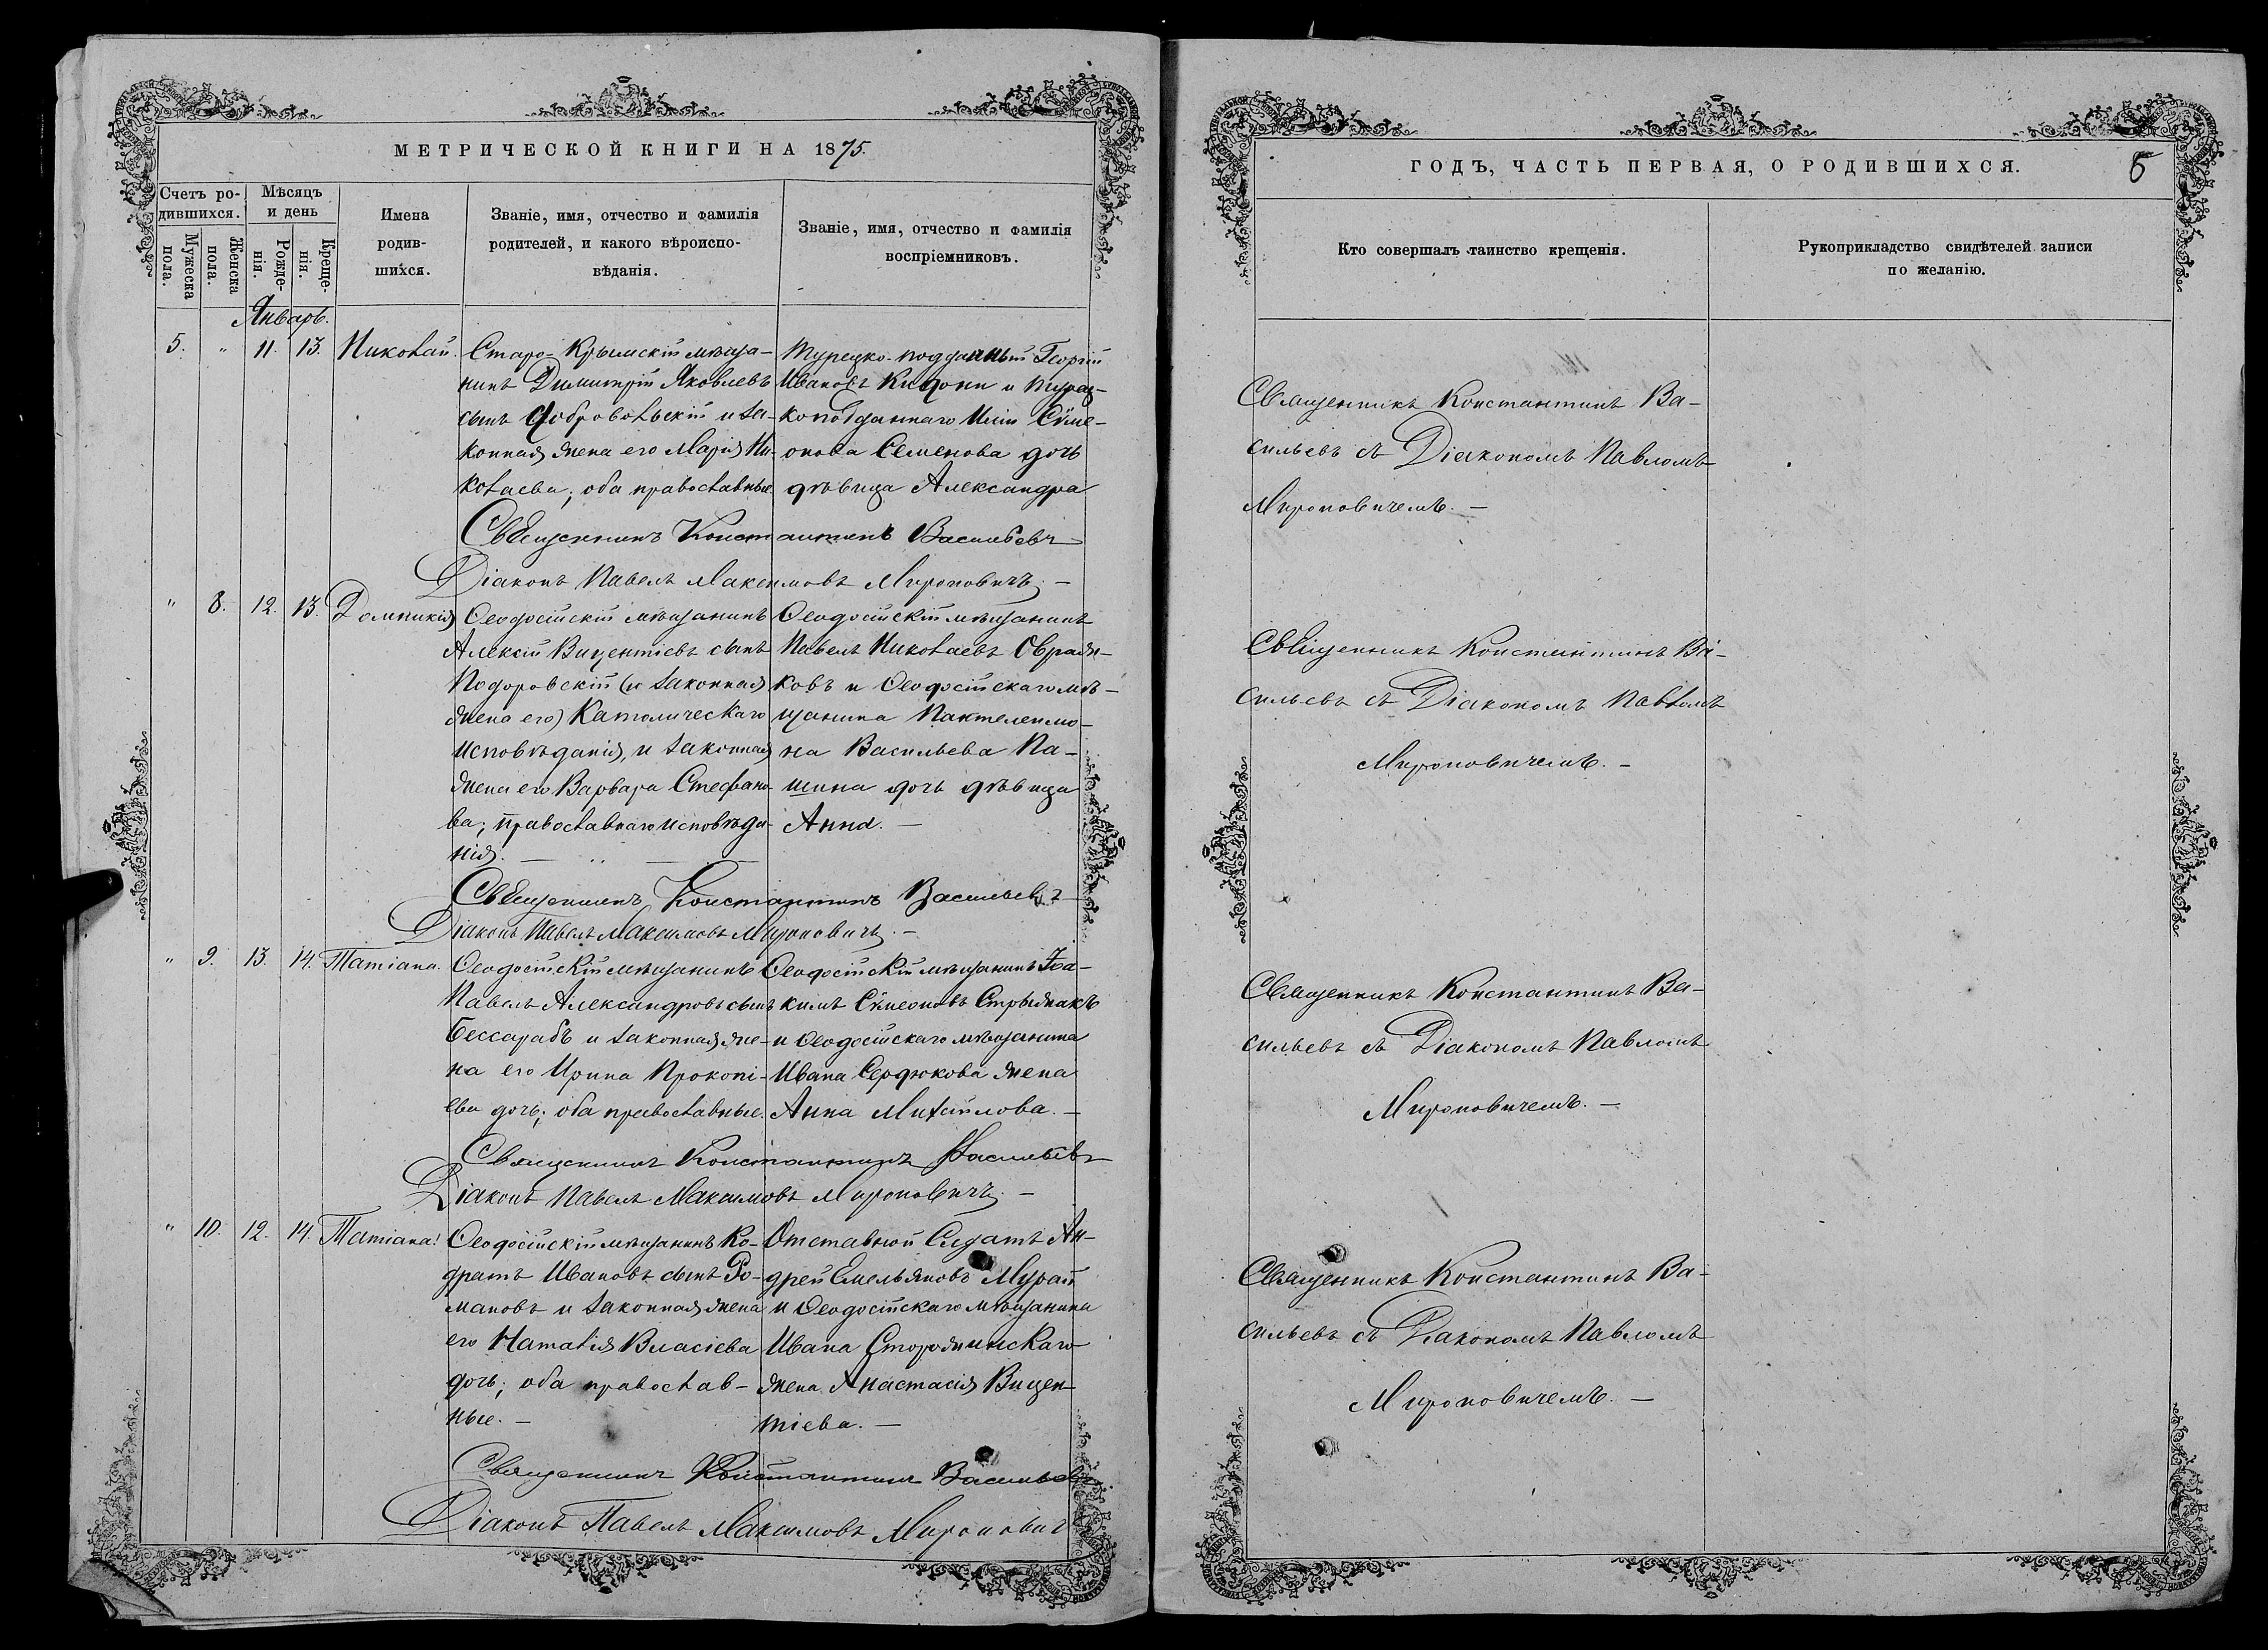 МЕТРИЧЕСКОЙ КНИГИ НА 1875.
Счетъ ро-
дившихся.
Мѣсяцъ
и день
Мужеска
пола.
Женска
пола.
Рожде-
нія.
Креще-
нія.
Имена
родив-
шихся.
Званіе, имя, отчество и фамилія
родителей, и какого вѣроиспо-
вѣданія.
Званіе, имя, отчество и фамилія
воспріемниковъ.
Январь.
5. " 11. 13. Николай.
Старо-Крымскій мѣща-
нинъ Димитрій Яковлевъ
сынъ Добровольскій и за-
конная жена его Марія Ни-
колаева; оба православные.
Турецко-подданный Георгій
Ивановъ и турец-
коподданнаго Иліи Сѵме-
онова Семенова дочь
дѣвица Александра
Священникъ Константинъ Васильевъ
Діаконъ Павелъ Максимовъ Мироновичъ. —
" 8. 12. 13. Домникія
Ѳеодосійскій мѣщанинъ
Алексій Викентіевъ сынъ
Подоровскій (и законная
жена его) Католическаго
исповѣданія, и законная
жена его Варвара Стефано-
ва; православнаго исповѣда-
нія. —
Ѳеодосійскій мѣщанинъ
Павелъ Николаевъ Овраж-
ковъ и Ѳеодосійскаго мѣ-
щанина Пантелеимо-
на Васильева Па-
шина дочь дѣвица
Анна. —
Священникъ Константинъ Васильевъ
Діаконъ Павелъ Максимовъ Мироновичъ. —
" 9. 13. 14. Татіана.
Ѳеодосійскій мѣщанинъ
Павелъ Александровъ сынъ
Бессарабъ и законная же-
на его Ирина Прокопі-
ева дочь; оба православные.
Ѳеодосійскій мѣщанинъ Іоа-
кимъ Сѵмеоновъ Стрыжакъ
и Ѳеодосійскаго мѣщанина
Ивана Сердюкова жена
Анна Михайлова. —
Священникъ Константинъ Васильевъ
Діаконъ Павелъ Максимовъ Мироновичъ. —
" 10. 12. 14. Татіана.
Ѳеодосійскій мѣщанинъ Ко-
дратъ Ивановъ сынъ Ро-
мановъ и законная жена
его Наталія Власіева
дочь; оба православ-
ные. —
Отставной Солдатъ Ан-
дрей Емельяновъ Мурай
и Ѳеодосійскаго мѣщанина
Ивана Сторожинскаго
жена Анастасія Викен-
тіева. —
Священникъ Константинъ Васильевъ
Діаконъ Павелъ Максимовъ Мироновичъ
ГОДЪ, ЧАСТЬ ПЕРВАЯ, О РОДИВШИХСЯ.
Кто совершалъ таинство крещенія.
Рукоприкладство свидѣтелей записи
по желанію.
Священникъ Константинъ Ва-
сильевъ съ Діакономъ Павломъ
Мироновичемъ. —
Священникъ Константинъ Ва-
сильевъ съ Діакономъ Павломъ
Мироновичемъ. —
Священникъ Константинъ Ва-
сильевъ съ Діакономъ Павломъ
Мироновичемъ. —
Священникъ Константинъ Ва-
сильевъ съ Діакономъ Павломъ
Мироновичемъ. —